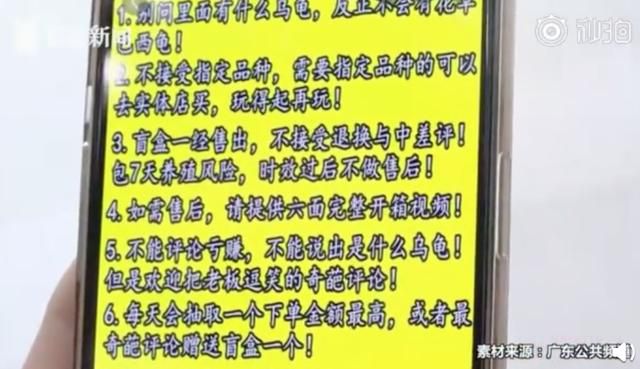 新闻
秒拍
1. 别问里面有什么乌龟，反正不会有花草
巴西龟！
2. 不接受指定品种，需要指定品种的可以
去实体店买，玩得起再玩！
3. 盲盒一经售出，不接受退换与中差评！
包7天养殖风险，时效过后不做售后！
4. 如需售后，请提供六面完整开箱视频！
5. 不能评论亏赚，不能说出是什么乌龟！
但是欢迎把老板逗笑的奇葩评论！
6. 每天会抽取一个下单金额最高，或者最
奇葩评论赠送盲盒一个！
素材来源：广东公共频道